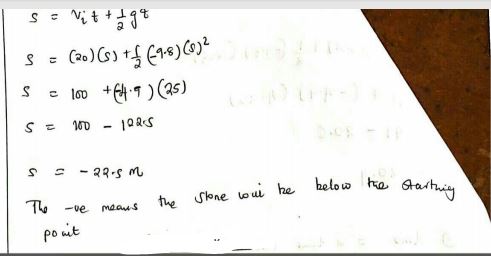 s = Vit + 1/2 gt
s = (20)(5) + 1/2 (-9.8)(5)²
s = 100 + (-4.9)(25)
s = 100 - 122.5
s = -22.5 m
The -ve means the stone will be below the starting
point